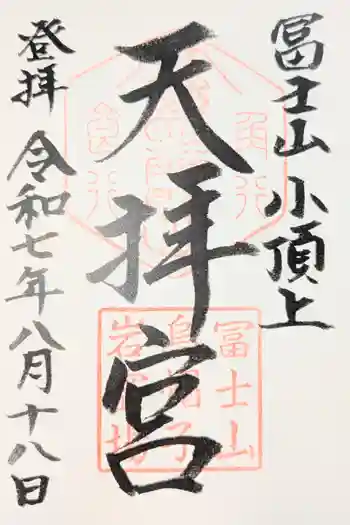 冨士山小頂上
天拝宮
登拝 令和七年八月十八日